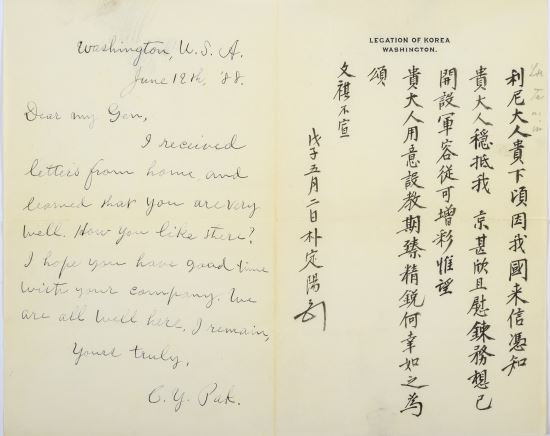 Washington, U.S.A.
June 12th, '88.
Dear my Gen,
I received
letters from home, and
learned that you are very
well. How you like there?
I hope you have good time
with your company. We
are all well here. I remain,
Yours truly,
C. Y. Pak.
LEGATION OF KOREA
WASHINGTON.
利尼大人貴下頃因我國来信憑知
貴大人穩抵我 京甚欣且慰鍊務想已
開設軍容從可增彩惟望
貴大人用意設教期臻精銳何幸如之為
頌
文祺不宣
戊子五月二日朴定陽